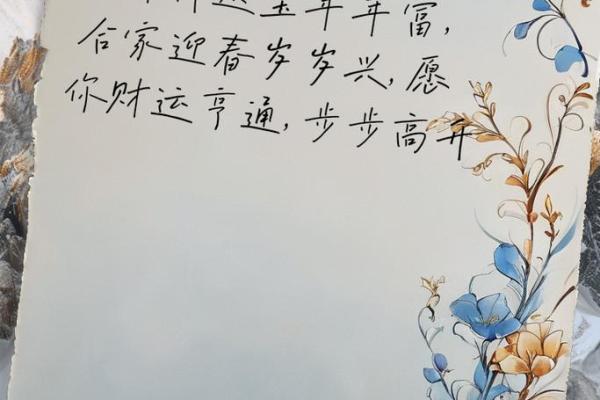 年年富,
合家迎春岁岁兴,愿
你财运亨通,步步高升